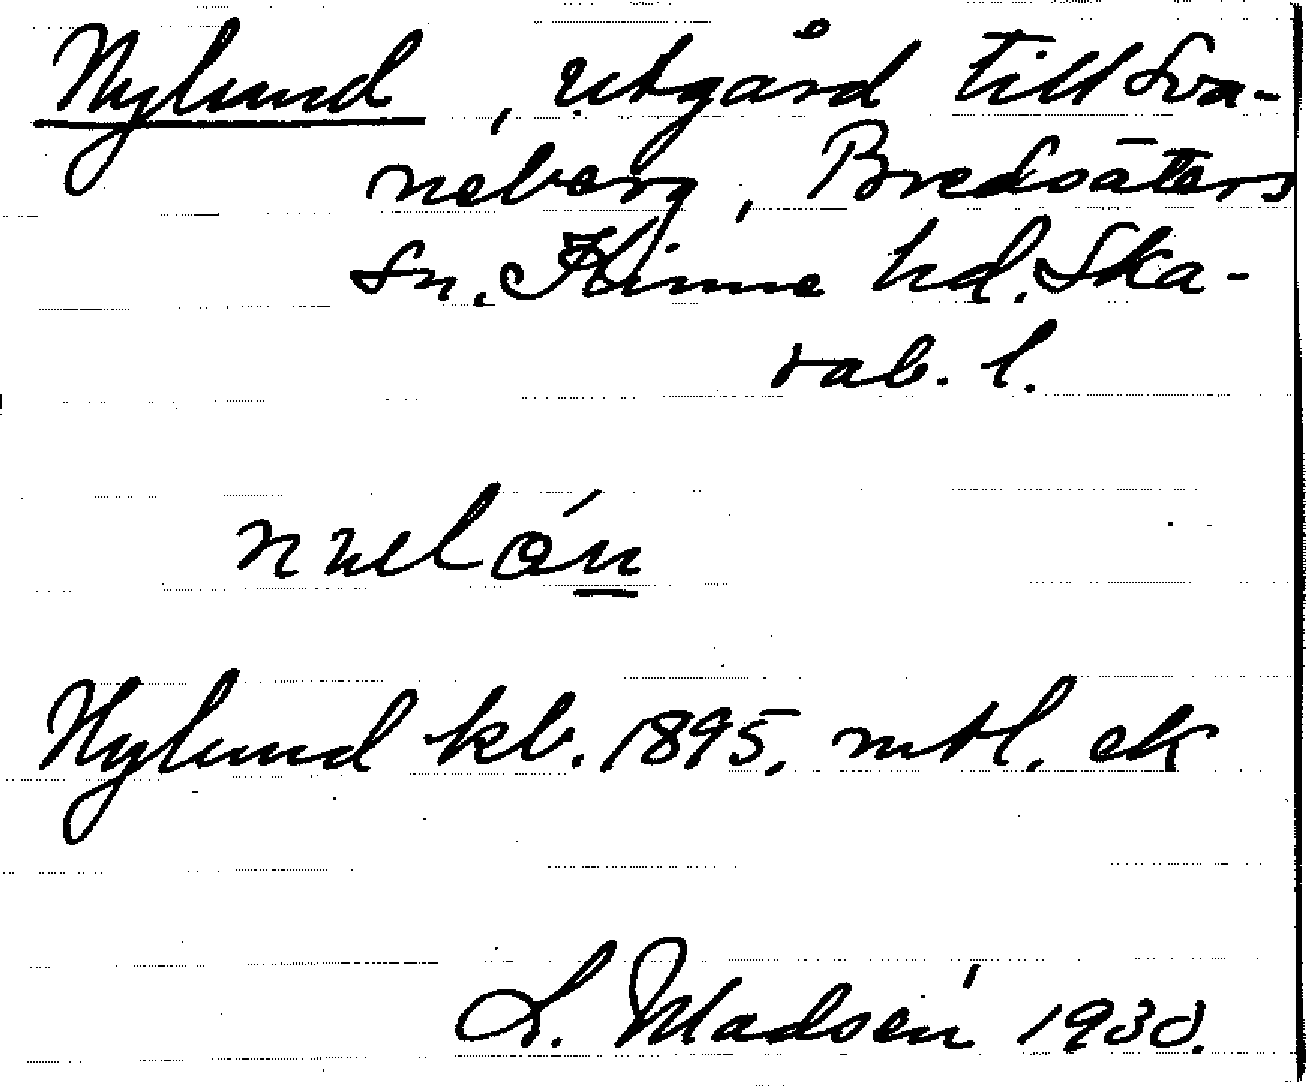 Nylund, utgård till Sva-
neberg, Bredsäters
sn. Kinne hd. Ska-
rab. l.
Nylund kb. 1895, mtl. ek
S. Madsén 1930.